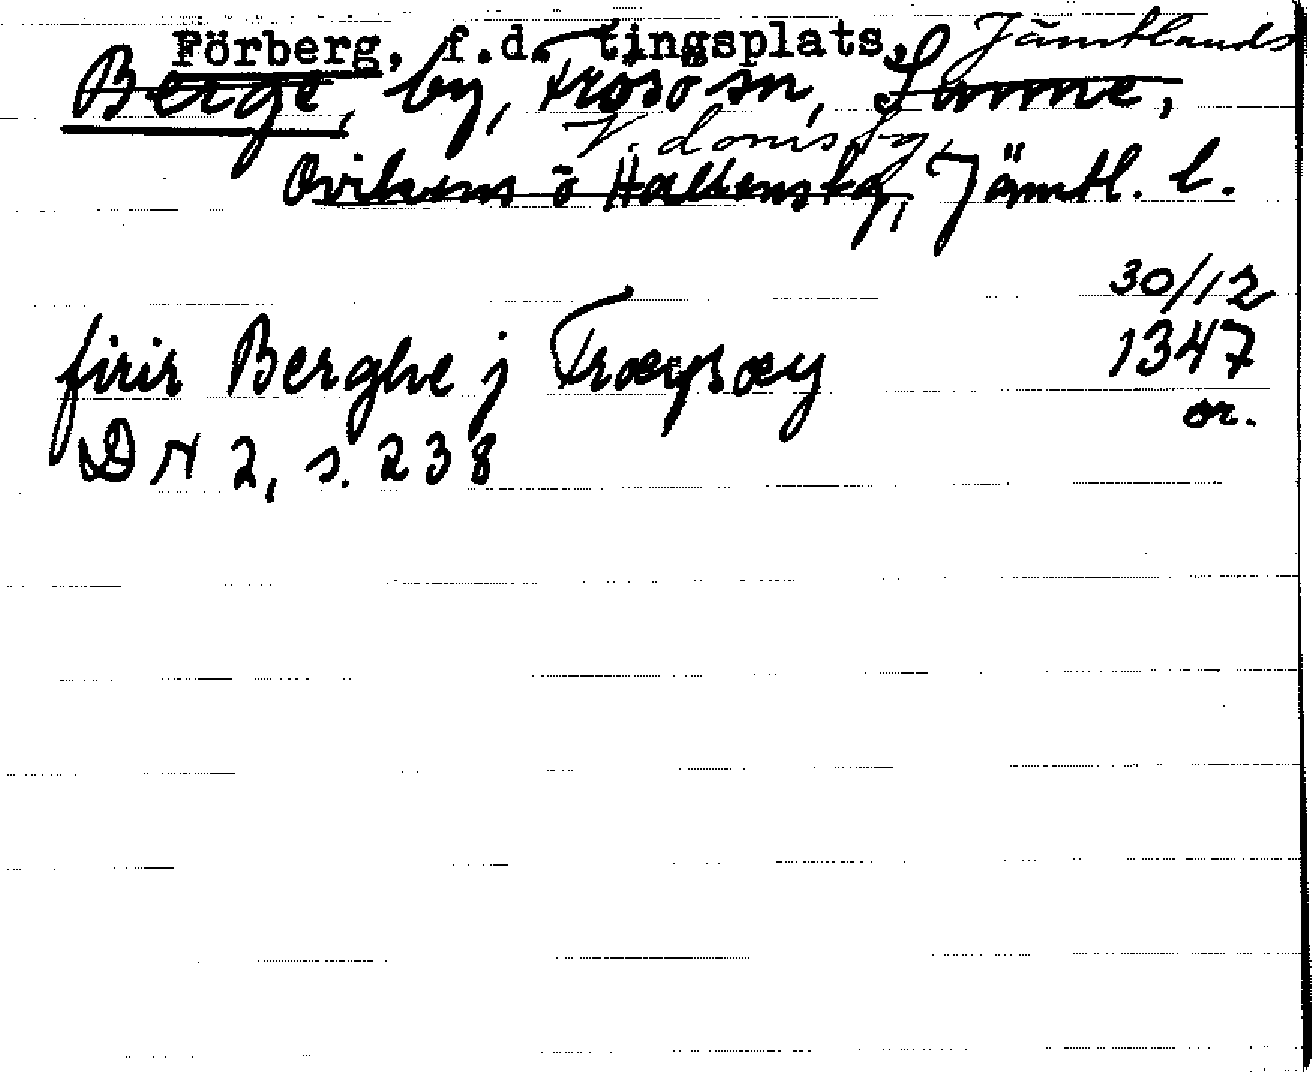 Förberg, f.d. tingsplats, Jämtlands
Berge, by, Frösö sn, Sunne,
V. domsag.
Ovikens o Hallens tg, Jämtl. l.
30/12
firir Berghe j Frœysœy 1347
or.
DN 2, s. 238